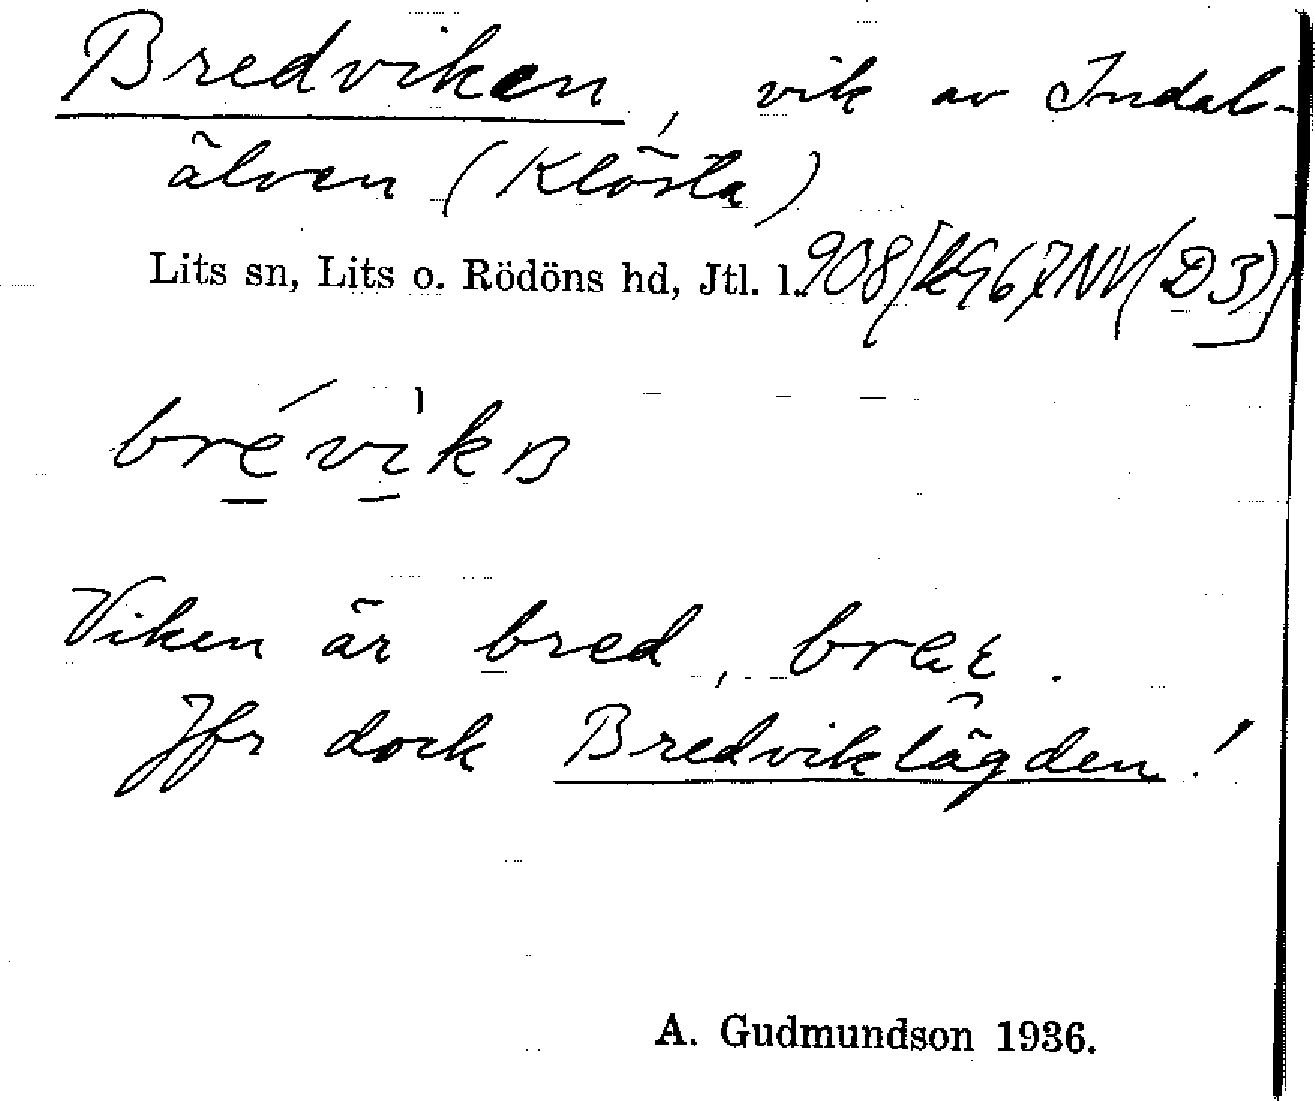 Bredviken, vik av Indals-
älven (Klösta)
Lits sn, Lits o. Rödöns hd, Jtl. l. 908/
Viken är bred, brae.
Jfr dock Bredviklägden!
A. Gudmundson 1936.